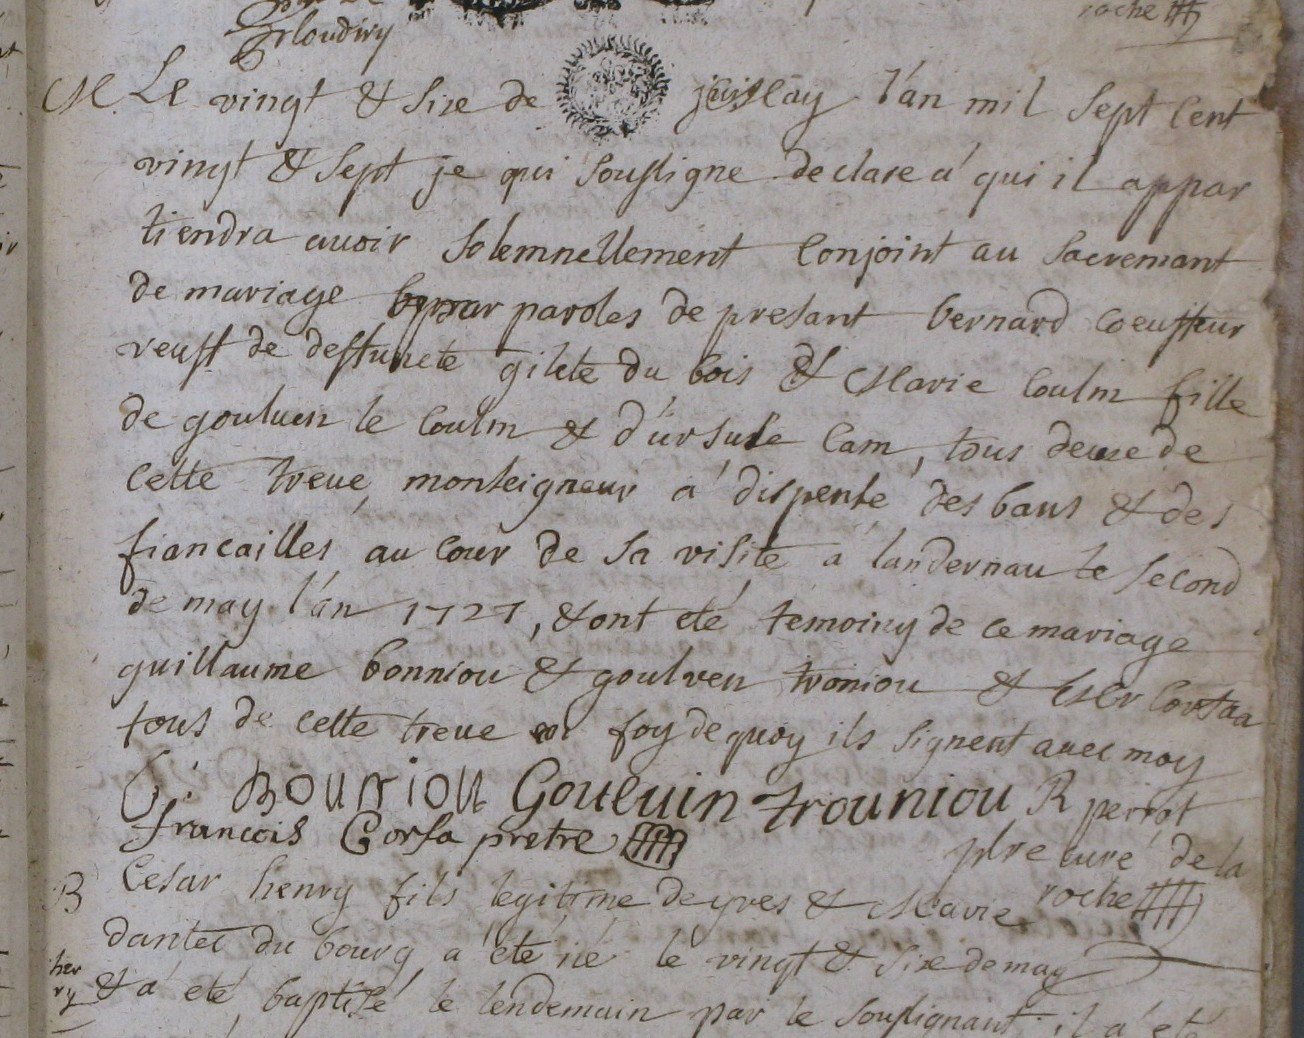 Ploudiry
roche
M Le vingt & sixe de may l'án mil sept cent
vingt & sept je qui soussigne declare á qui il appar
tiendra avoir solemnellement conjoint au sacremant
de mariage par paroles de presant bernard coeuffeur
veuff de deffuncte gilete du bois & Marie coulm fille
de goulven le coulm & d'ursule cam, tous deuxe de
cette treve, monseigneur á dispensé des bans & des
fiancailles au cour de sa visite a landernau le second
de may l'án 1727, & ont eté temoins de ce mariage
guillaume bonniou & goulven troniou & corfaa
tous de cette treve en foy de quoy ils signent avec moy
G: BOUNIOU Gouluin trouniou R perrot
francois Corfa pretre
ptre curé de la
roche
B Cesar henry fils legitime de yves & Marie
dantec du bourg a été né le vingt & sixe de may
hen
ry
& á eté baptisé le lendemain par le soussignant il a eté